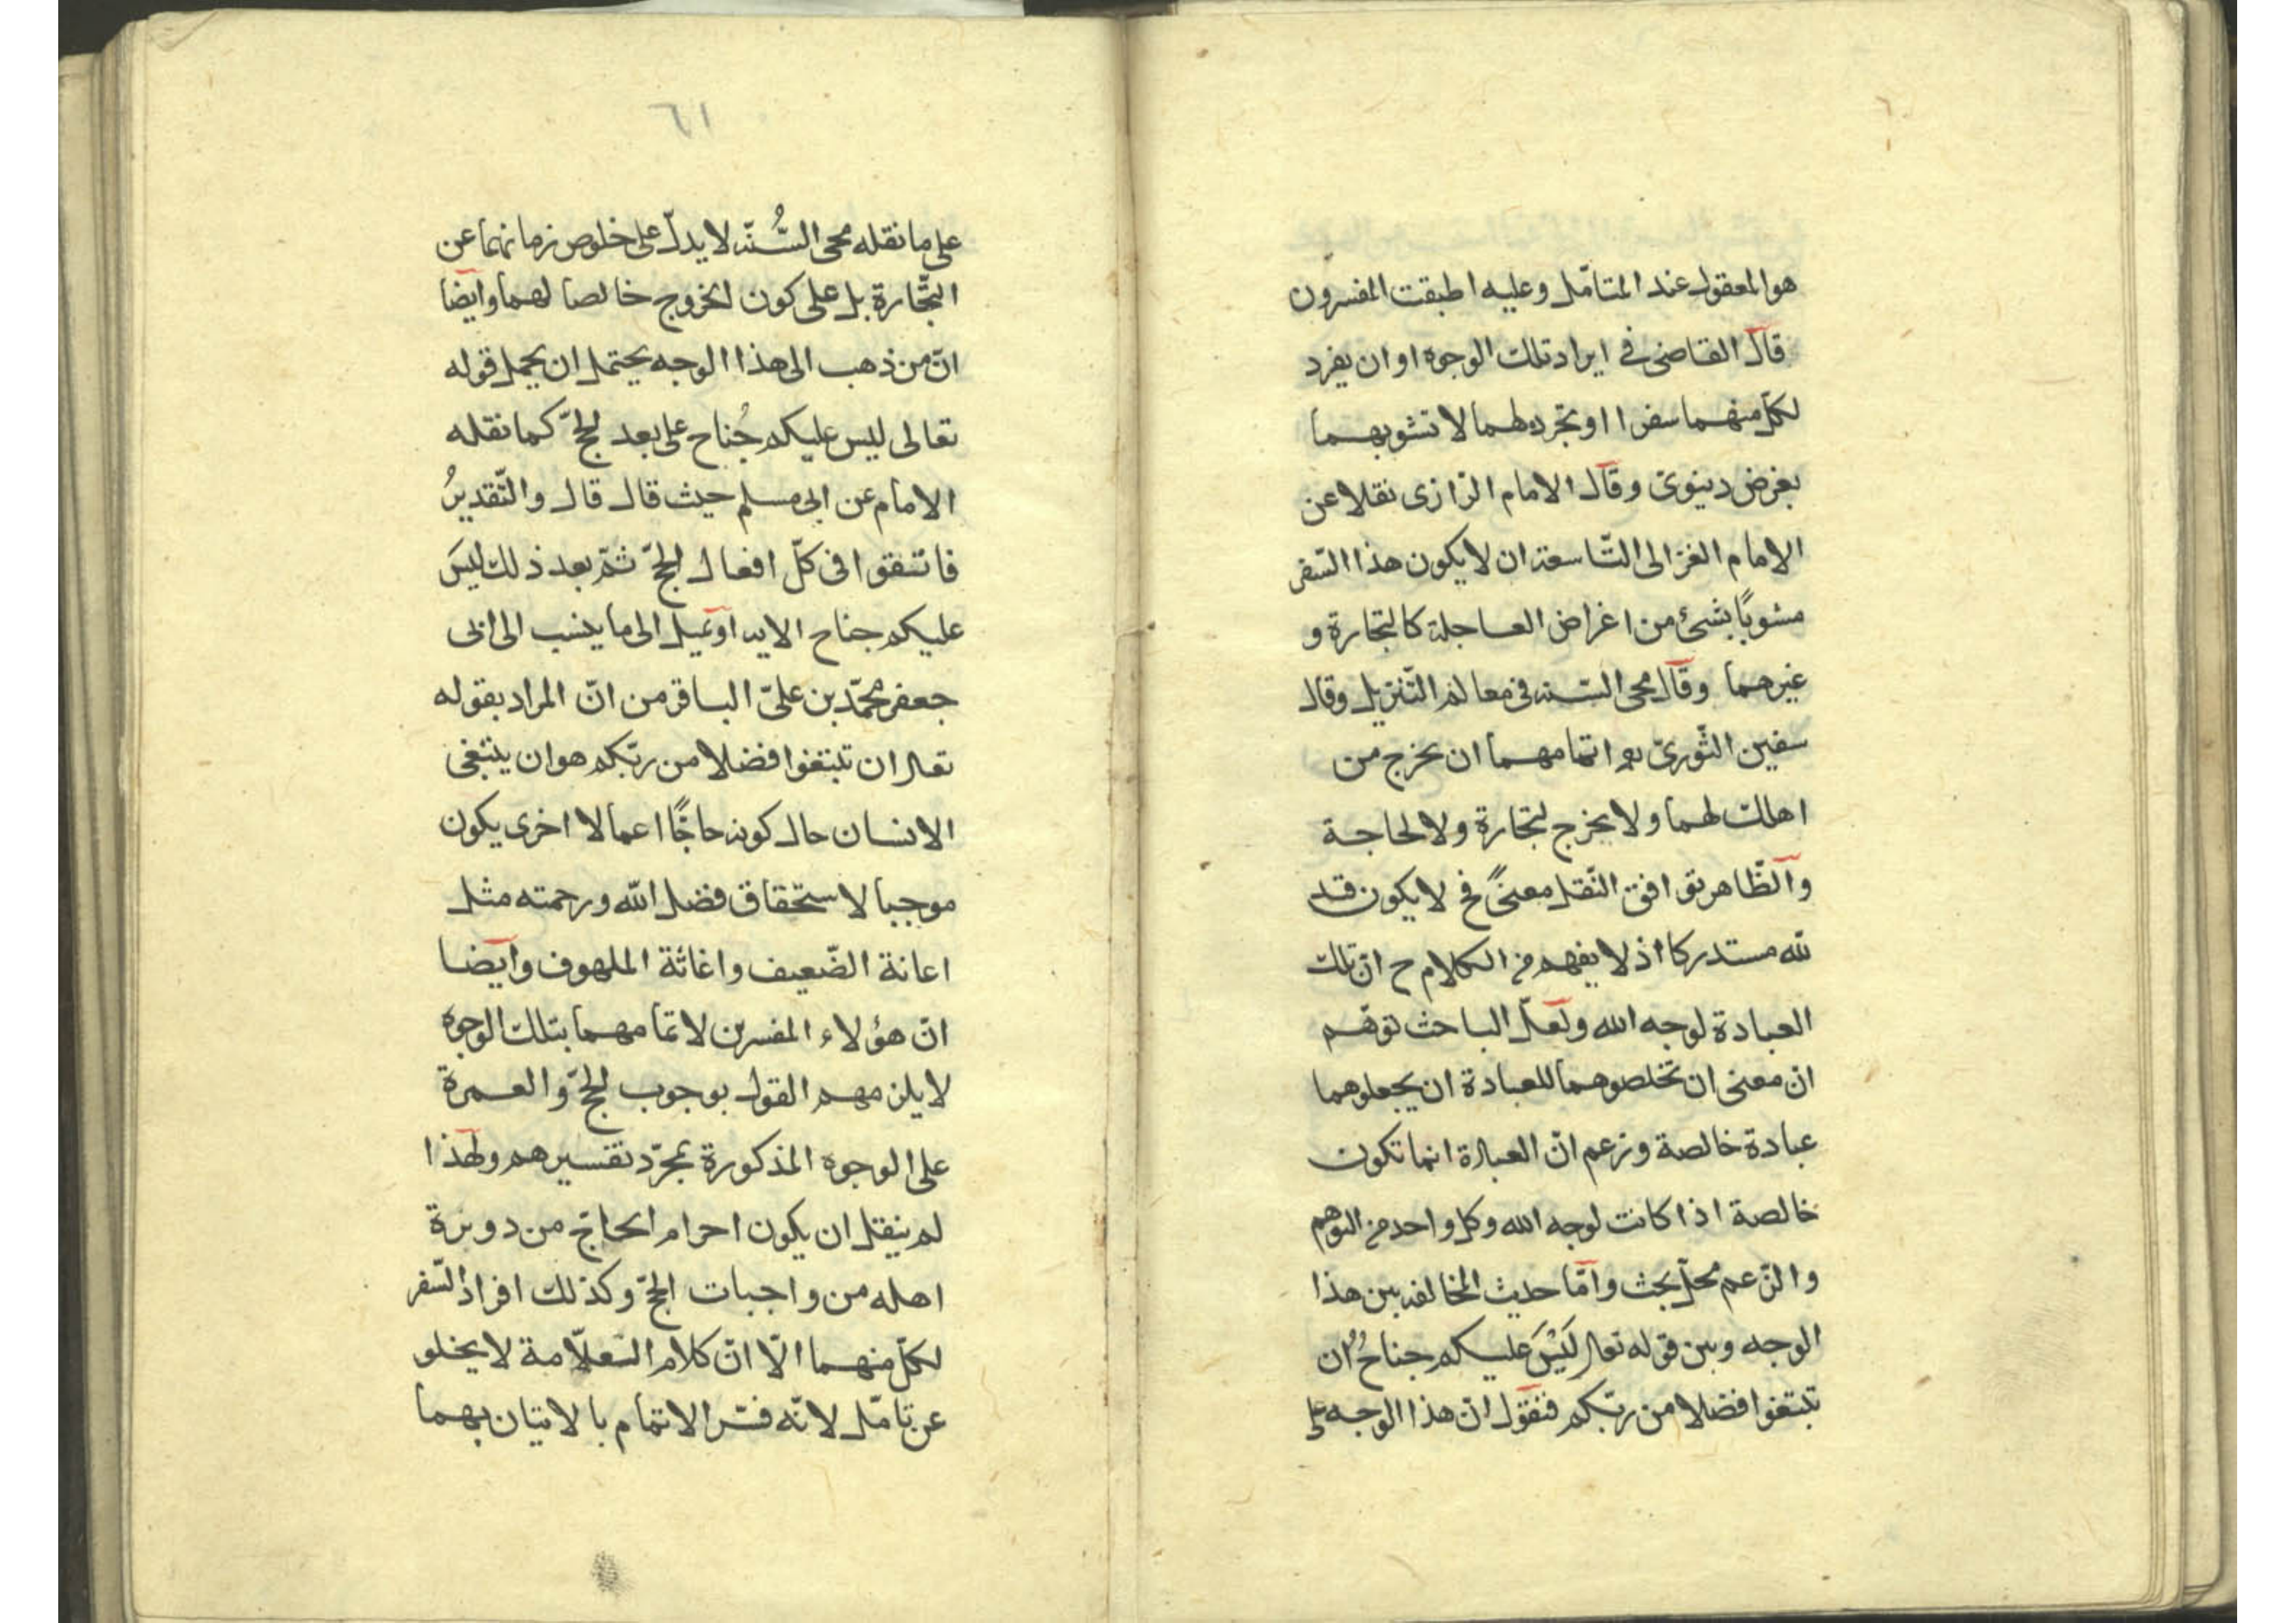 هو المعقول عند المتامّل وعليه اطبقت المفسرون
قال القاضى فى ايراد تلك الوجوه او ان يفرد
لكلّ منهما سفرا او تجرده لهما لا تشوبهما
بغرض دينوىّ وقال الامام الرّازى نقلا عن
الامام الغزالى التّاسعة ان لا يكون هذا السّفر
مشوبًا بشئ من اغراض العاجلة كالتجارة و
غيرهما وقال محى السّنه فى معالم التّنزيل وقال
سفين الثّورىّ اتمامهما ان يخرج من
اهلك لهما ولا يخرج لتجارة ولا لحاجة
والظّاهر توافق النّقل معنىً فح لا يكون قيد
لله مستدركا اذ لا يفهم من الكلام ح ان تلك
العبادة لوجه الله ولعلّ الباحث توهّم
ان معنى ان تخلصوهما للعبادة ان يجعلوهما
عبادة خالصة وزعم انّ العبادة انما تكون
خالصة اذا كانت لوجه الله وكل واحد من التوهم
والزّعم محلّ بحث وامّا حديث المخالفه بين هذا
الوجه وبين قوله تعالى لَيْسَ عليكم جناحٌ ان
تبتغوا فضلا من ربّكم فنقول انّ هذا الوجه على
٦١
على ما نقله محى السُّنّه لا يدلّ على خلوص زمانهما عن
التّجارة بل على كون الخروج خالصا لهما وايضا
انّ من ذهب الى هذا الوجه يحتمل ان يحمل قوله
تعالى ليس عليكم جُناح على بعد الحجّ كما نقله
الامام عن ابى مسلم حيث قال قال والتّقديرُ
فاتّقوا فى كلّ افعال الحجّ ثمّ بعد ذلك ليسَ
عليكم جناح الايه او يميل الى ما ينسب الى ابى
جعفر محمّد بن علىّ الباقر من انّ المراد بقوله
تعالى ان تبتغوا فضلا من ربّكم هو ان يبتغى
الانسان حال كونه حاجًّا اعمالا اخرى يكون
موجبا لاستحقاق فضل الله ورحمته مثل
اعانة الضّعيف واغاثة الملهوف وايضا
انّ هؤلاء المفسرين لاتمامهما بتلك الوجوه
لا يلزمهم القول بوجوب الحجّ والعمرة
على الوجوه المذكورة بمجرّد تفسيرهم ولهذا
لم ينقل ان يكون احرام الحاجّ من دويرة
اهله من واجبات الحجّ وكذلك افراد السّفر
لكلّ منهما الّا انّ كلام العلّامة لا يخلو
عن تامّل لانّه فسّر الاتمام بالاتيان بهما